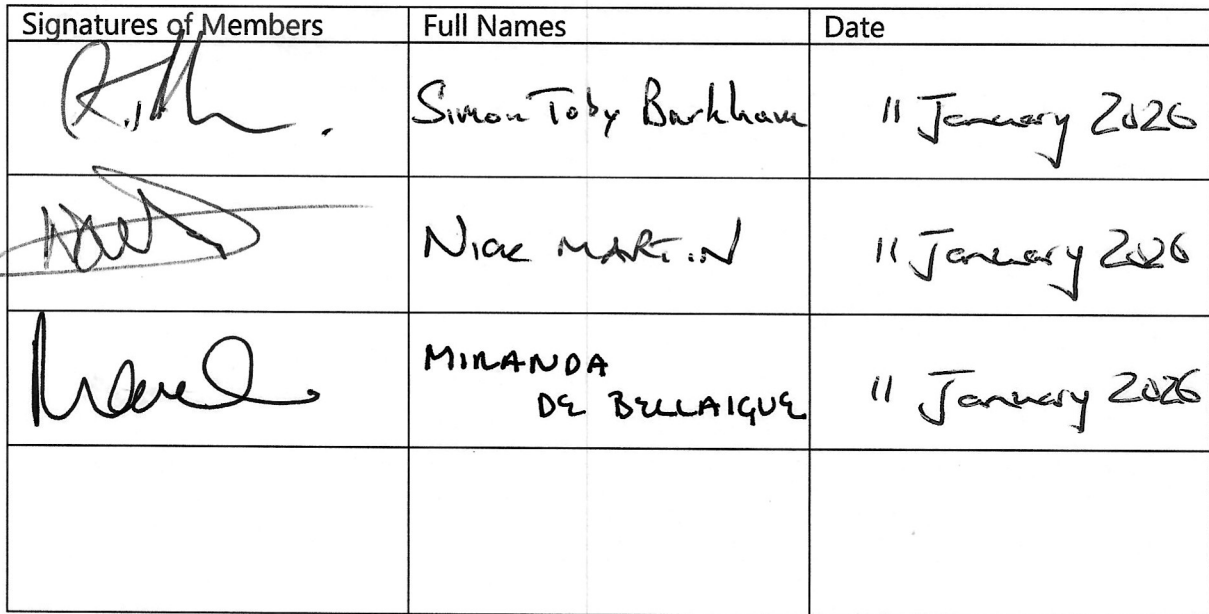 Signatures of Members Full Names Date
Simon Toby Barkham 11 January 2026
Nick MARTIN 11 January 2026
MIRANDA
DE BELLAIGUE 11 January 2026